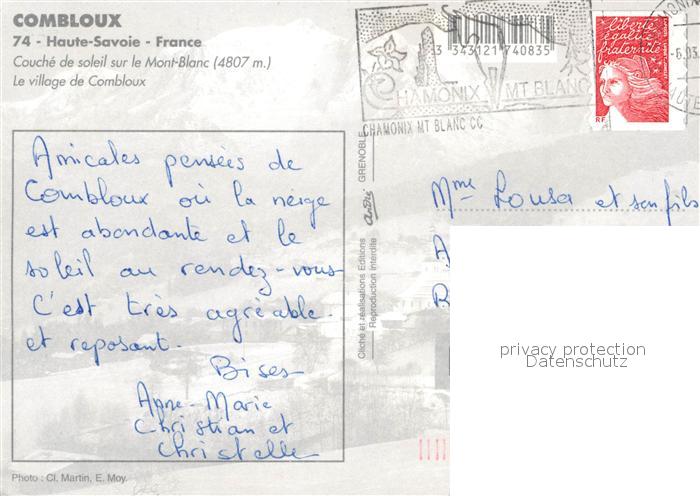 COMBLOUX
74 - Haute-Savoie - France
Couché de soleil sur le Mont-Blanc (4807 m.)
Le village de Combloux
3 343121 740835
CHAMONIX MT BLANC
CHAMONIX MT BLANC CC
liberté
égalité
fraternité
RF
CHAMONIX
-6.03
Amicales pensées de
Combloux où la neige
est abondante et le
soleil au rendez-vous
C'est très agréable
et reposant.
Bises
Anne-Marie
Christian et
Christelle
Cliché et réalisations Editions André - GRENOBLE
Reproduction interdite
Mme Lousa et son fils
A
B
privacy protection
Datenschutz
Photo : Cl. Martin, E. Moy.